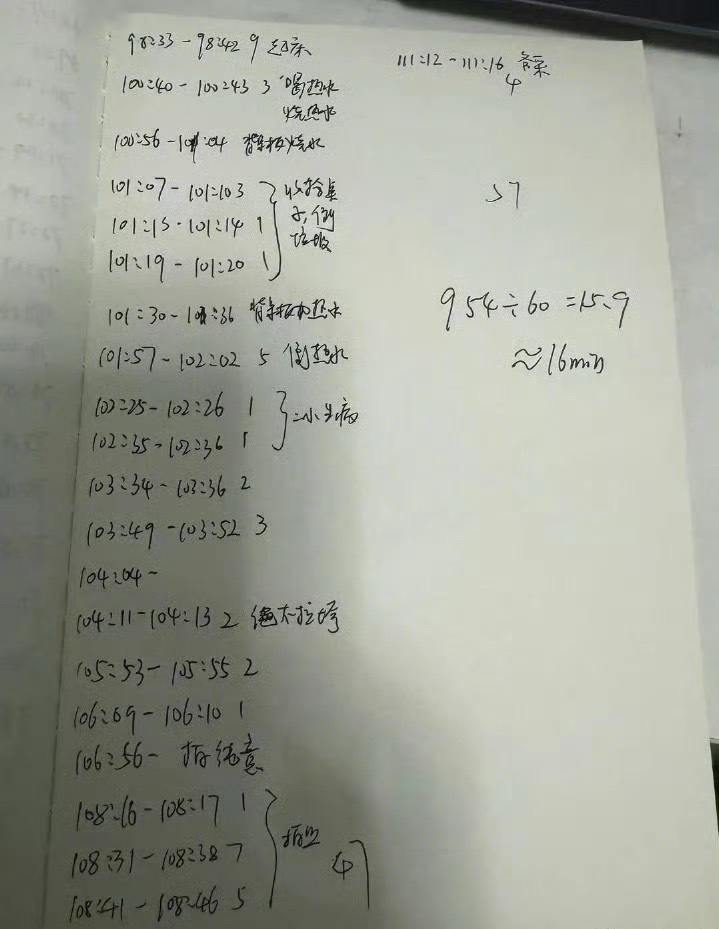 98:33 - 98:42 9 起床
100:40 - 100:43 3 喝热水
烧热水
100:56 - 101:04 背景板烧水
101:07 - 101:103 收拾桌
101:15 - 101:14 1 子,倒
101:19 - 101:20 1 垃圾
101:30 - 101:36 背景板加热水
101:57 - 102:02 5 倒热水
102:25 - 102:26 1
102:35 - 102:36 1
103:34 - 103:36 2
103:49 - 103:52 3
104:04 -
104:11 - 104:13 2
105:53 - 105:55 2
106:09 - 106:10 1
106:56 -
108:16 - 108:17 1
108:31 - 108:38 7
108:41 - 108:46 5
47
111:12 - 111:16 备菜
4
57
954÷60 =15.9
≈16min